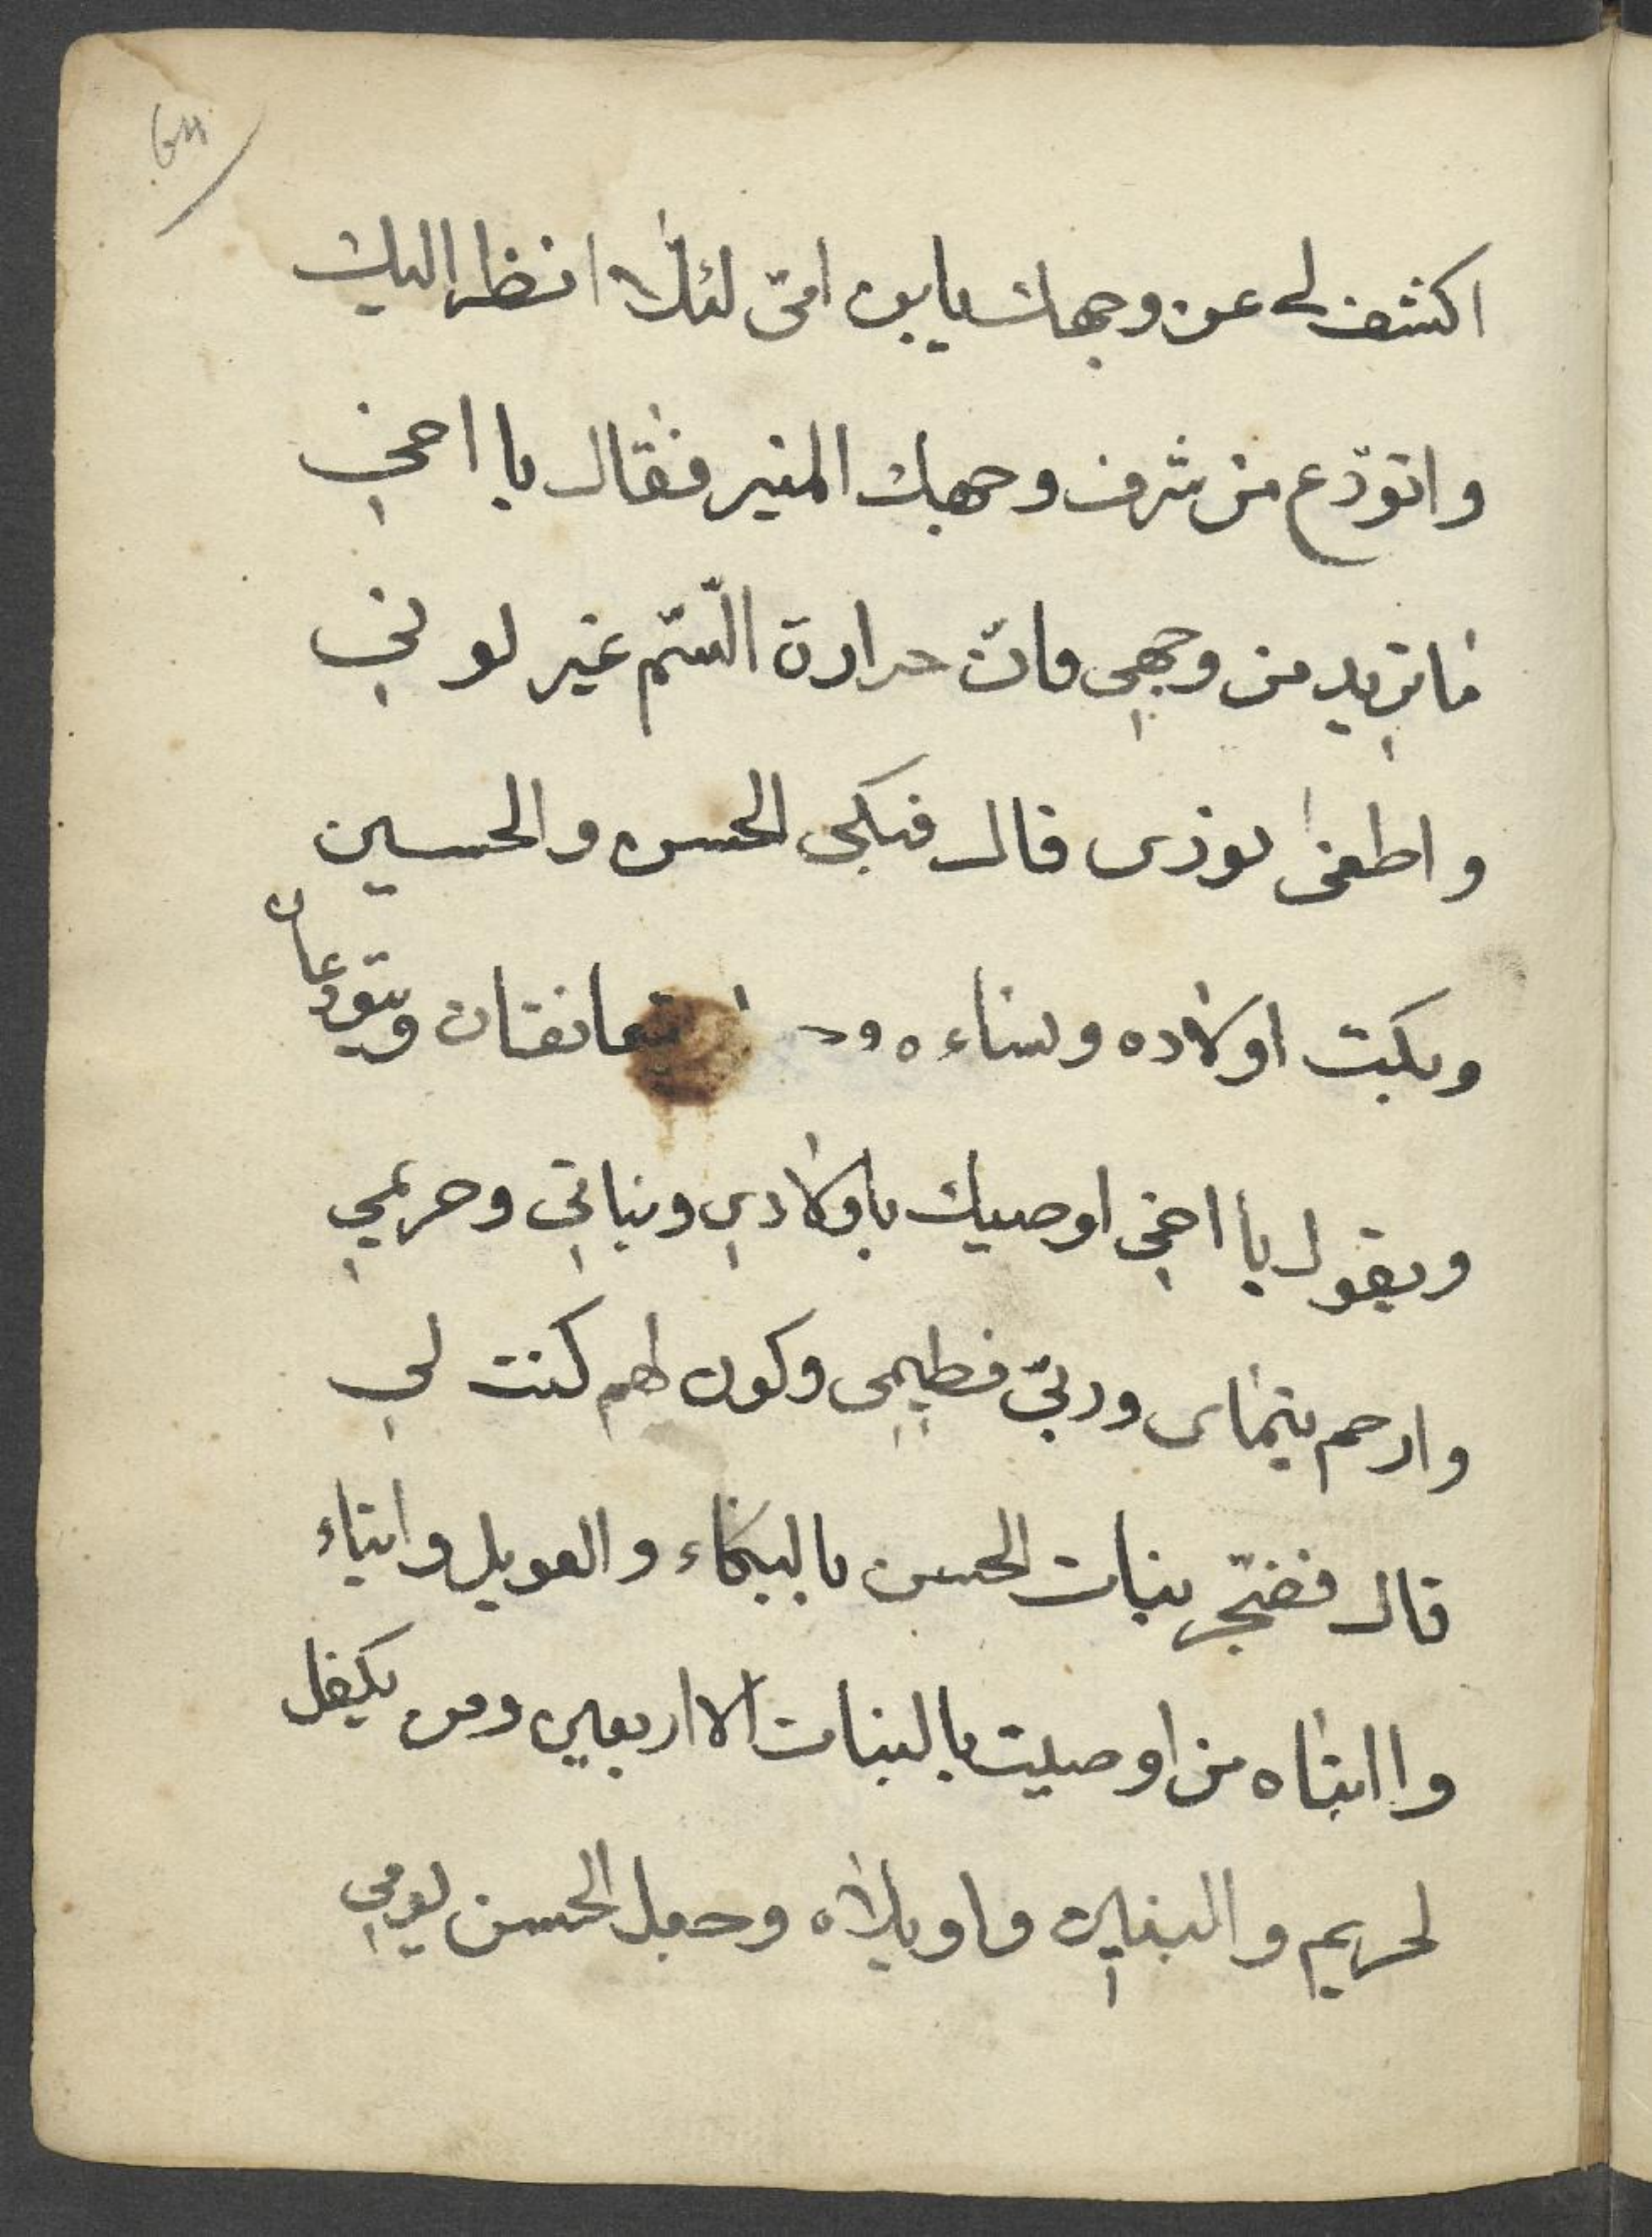 اكشف لي عن وجهك يابن امّي لئلّا انظر اليك
واتودّع من شرف وجهك المنير فقال يا اخي
ما تريد من وجهي فانّ حرارة السّمّ غير لوني
واطفىٰ نورى قال فبكى الحسن والحسين
وبكت اولاده ونساءه يتعانقان ويتودعان
ويقول يا اخي اوصيك باولادي وبناتي وحريمي
وارحم يتماى وربّي فطيمي وكون لهم كنت لي
قال فضجّ بنات الحسن بالبكاء والعويل وابتاء
وا ابتاه من اوصيت بالبنات الاربعين ومن يكفل
لحريم والبنين واويلاه وجعل الحسن يومي